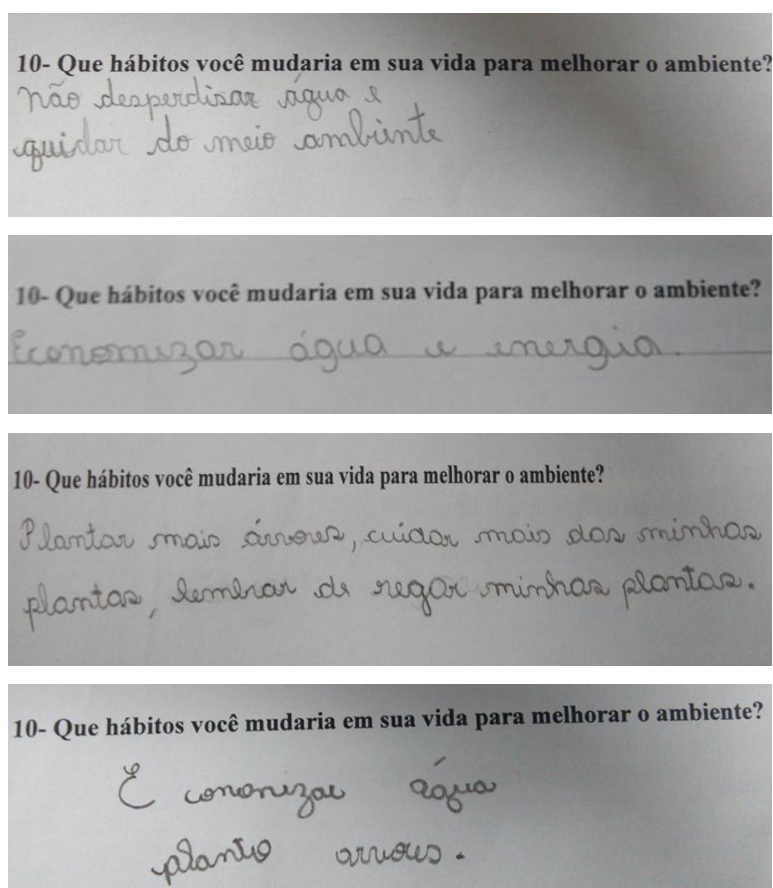 10- Que hábitos você mudaria em sua vida para melhorar o ambiente?
não desperdisar água e
quidar do meio ambiente
10- Que hábitos você mudaria em sua vida para melhorar o ambiente?
Economizar água e energia.
10- Que hábitos você mudaria em sua vida para melhorar o ambiente?
Plantar mais árvores, cuidar mais das minhas
plantas, lembrar de regar minhas plantas.
10- Que hábitos você mudaria em sua vida para melhorar o ambiente?
E cononizar água
plantio arvores.